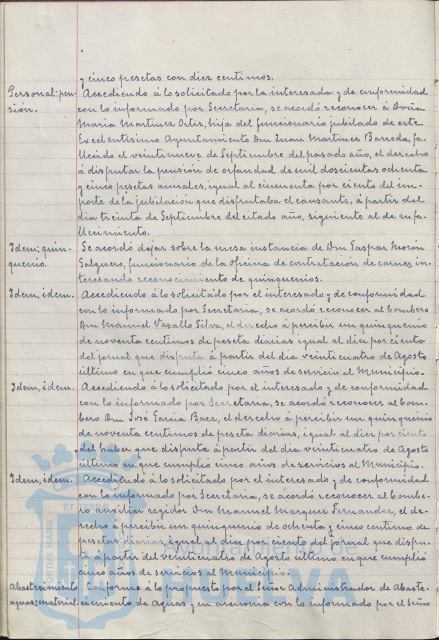 y cinco pesetas con diez centimos.
Personal: pen- Accediendo á lo solicitado por la interesada y de conformidad
sión. con lo informado por Secretaria, se acordó reconocer á Doña
Maria Martinez Ortiz, hija del funcionario jubilado de este
Excelentisimo Ayuntamiento Don Juan Martinez Barreda, fa-
llecido el veintinueve de Septiembre del pasado año, el derecho
á disfrutar la pensión de orfandad de mil doscientas ochenta
y cinco pesetas anuales, igual al cincuenta por ciento del im-
porte de la jubilación que disfrutaba el causante, á partir del
dia treinta de Septiembre del citado año, siguiente al de su fa-
llecimiento.
Idem; quin- Se acordó dejar sobre la mesa instancia de Don Gaspar Morón
quenio. Salguero, funcionario de la Oficina de contratación de carnes in-
teresando reconocimiento de quinquenios.
Idem, idem. Accediendo á lo solicitado por el interesado y de conformidad
con lo informado por Secretaria, se acordó reconocer al bombero
Don Manuel Vasallo Silva, el derecho á percibir un quinquenio
de noventa centimos de peseta diarias igual al diez por ciento
del jornal que disfruta á partir del dia veinticuatro de Agosto
último en que cumplió cinco años de servicio al Municipio.
Idem, idem. Accediendo á lo solicitado por el interesado y de conformidad
con lo informado por Secretaria, se acordó reconocer al bom-
bero Don José Garcia Baez, el derecho á percibir un quinquenio
de noventa centimos de peseta diarias, igual al diez por ciento
del haber que disfruta á partir del dia veinticuatro de Agosto
último en que cumplió cinco años de servicios al Municipio.
Idem, idem. Accediendo á lo solicitado por el interesado y de conformidad
con lo informado por Secretaria, se acordó reconocer al bombe-
ro auxiliar regidor Don Manuel Marquez Fernandez, el de-
recho á percibir un quinquenio de ochenta y cinco centimo de
pesetas diarias, igual al diez por ciento del jornal que disfru-
ta á partir del veinticuatro de Agosto último en que cumplió
cinco años de servicios al Municipio.
Abastecimiento Conforme á lo propuesto por el Señor Administrador de Abaste-
aguas: material. cimiento de Aguas y en armonia con lo informado por el Señor
PORTUS MARIS
HUELVA